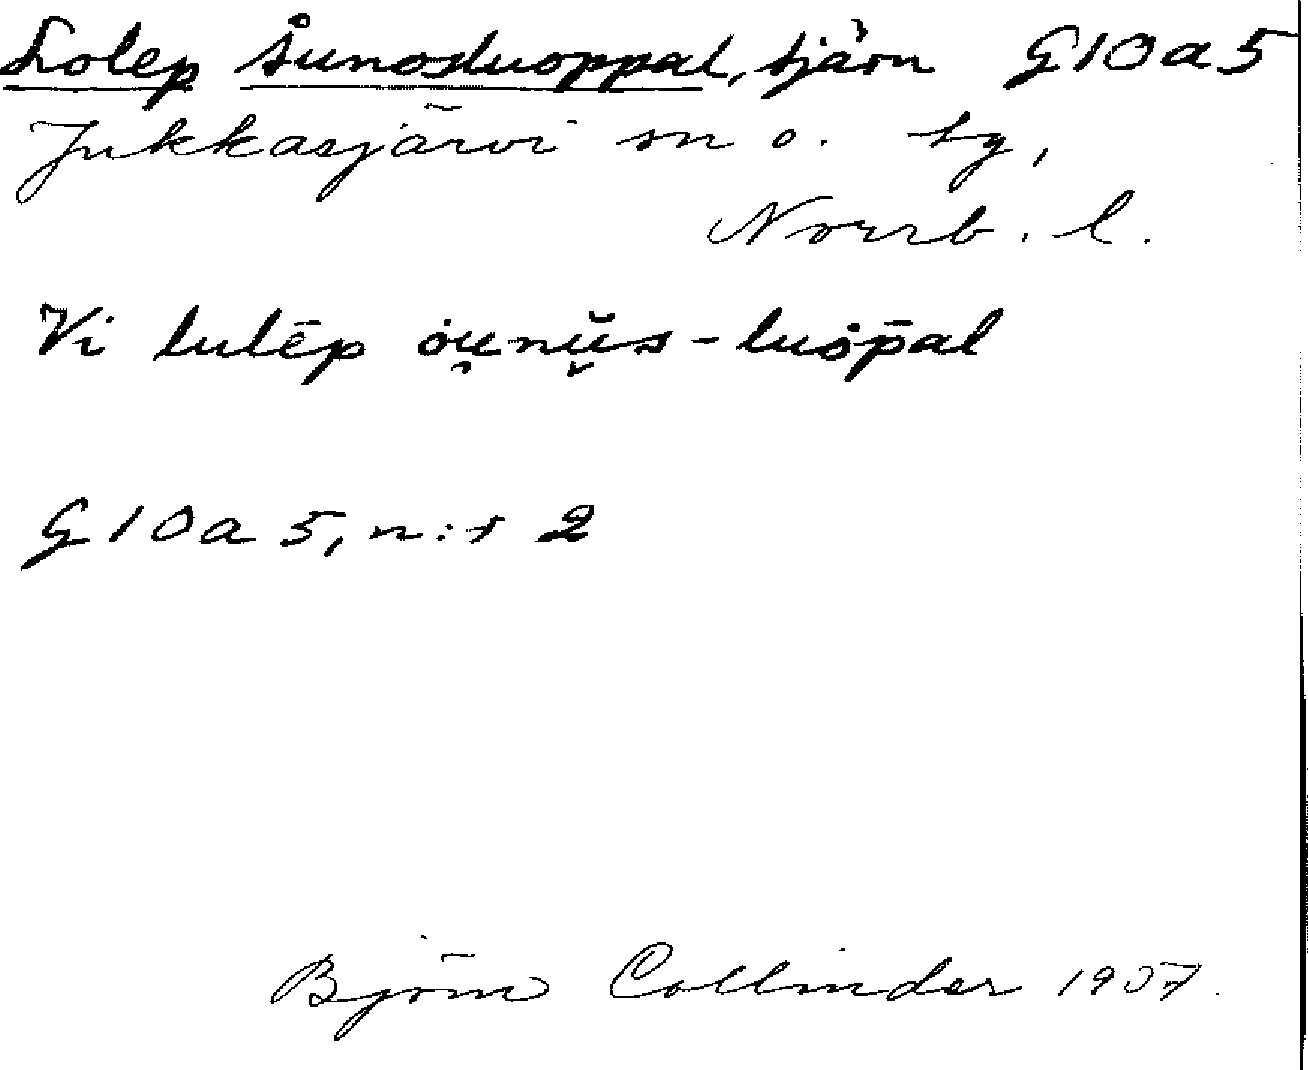 Lolep Åunosluoppal, tjärn G10a5
Jukkasjärvi sn o. tg,
Norrb. l.
Vi lulēp ȯu̯nŭ̯s-luȯp̄al
G10a5, n:r 2
Björn Collinder 1957.